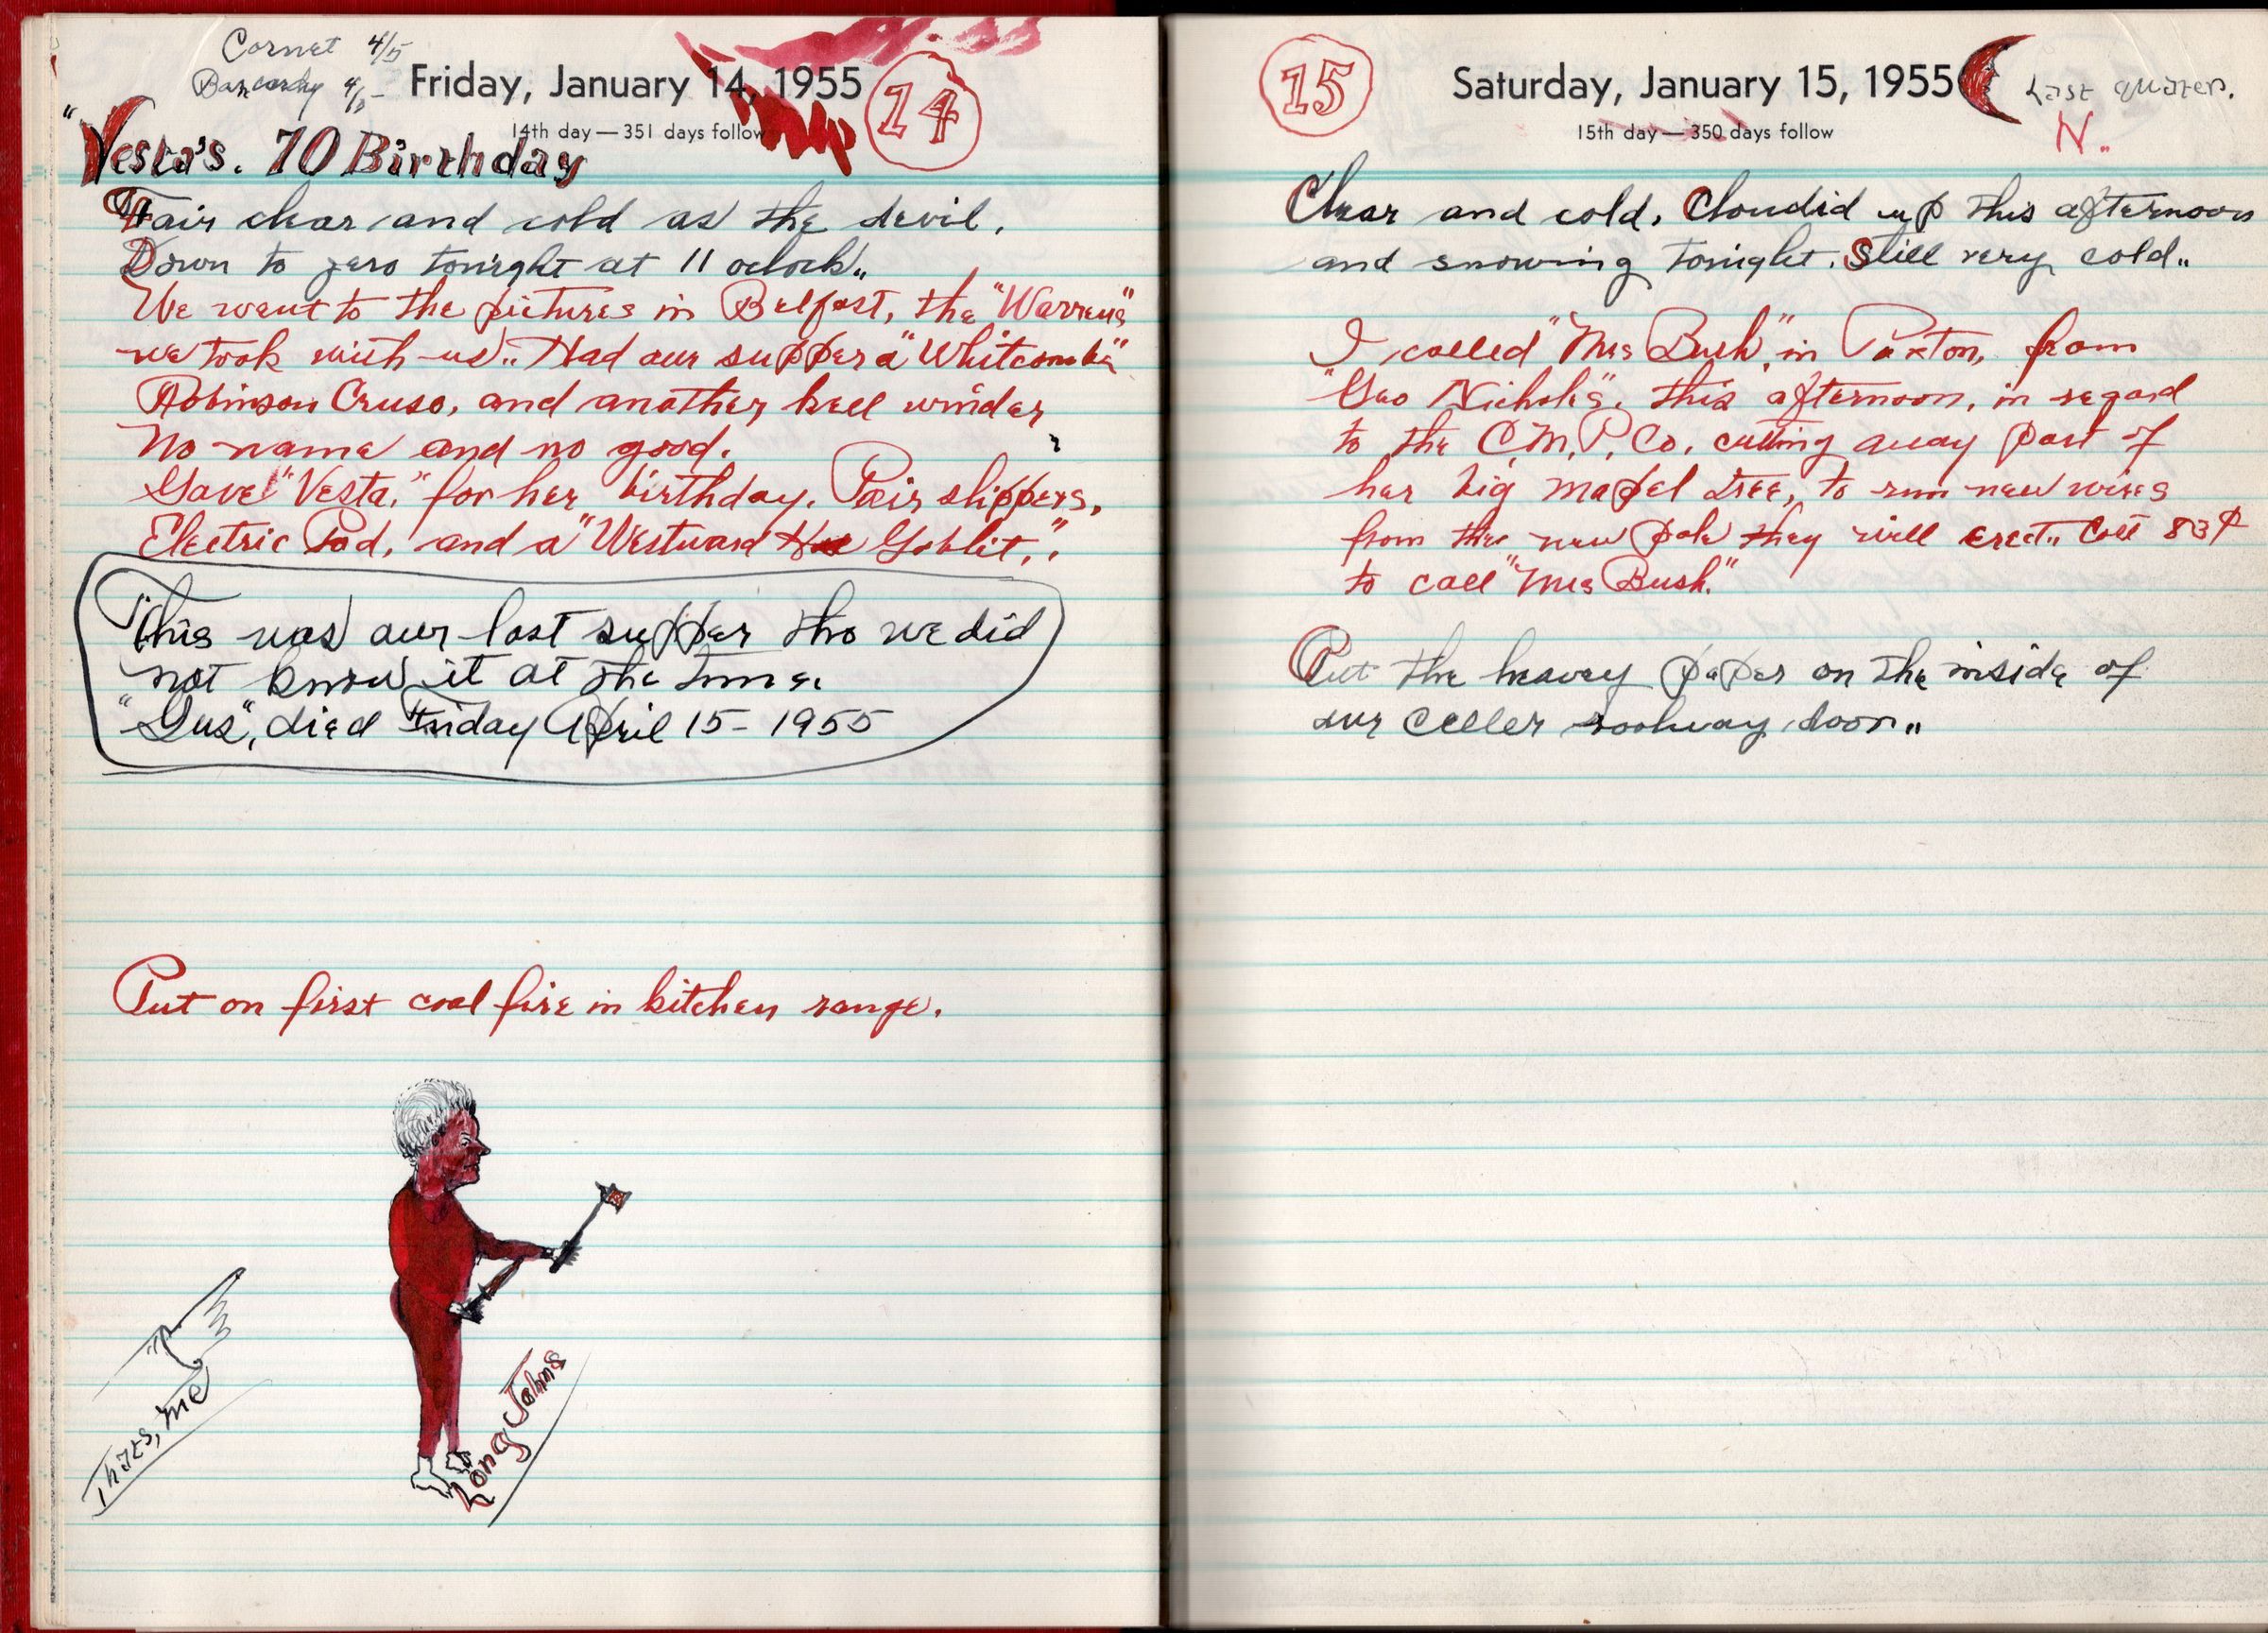 Cornet 4/5
Friday, January 14, 1955
14
14th day — 351 days follow
"Vesta's. 70 Birthday
Fair clear and cold as the devil.
Down to zero tonight at 11 oclock..
We went to the pictures in Belfast, the "Warrens"
we took with us.. Had our supper a "Whitcombs"
Robinson Cruso, and another hell winder
No name and no good.
Gave "Vesta," for her birthday. Pair slippers,
Electric Pad, and a "Westward Goblit.".
This was our last supper tho we did
not know it at the time.
"Gus", died Friday April 15 - 1955
Put on first coal fire in kitchen range.
Thats, me
Long Johns
15
Saturday, January 15, 1955
Last quater.
15th day — 350 days follow
N..
Clear and cold. Cloudid up this afternoon
and snowing tonight. Still very cold..
I called "Mrs Bush", in Paxton, from
"Geo Nichols". this afternoon, in regard
to the C.M.P. Co. cutting away part of
her big mapel tree, to run new wires
from the new pole they will erect.. Cost 83¢
to call "Mrs Bush."
Put the heavey paper on the inside of
our celler door..